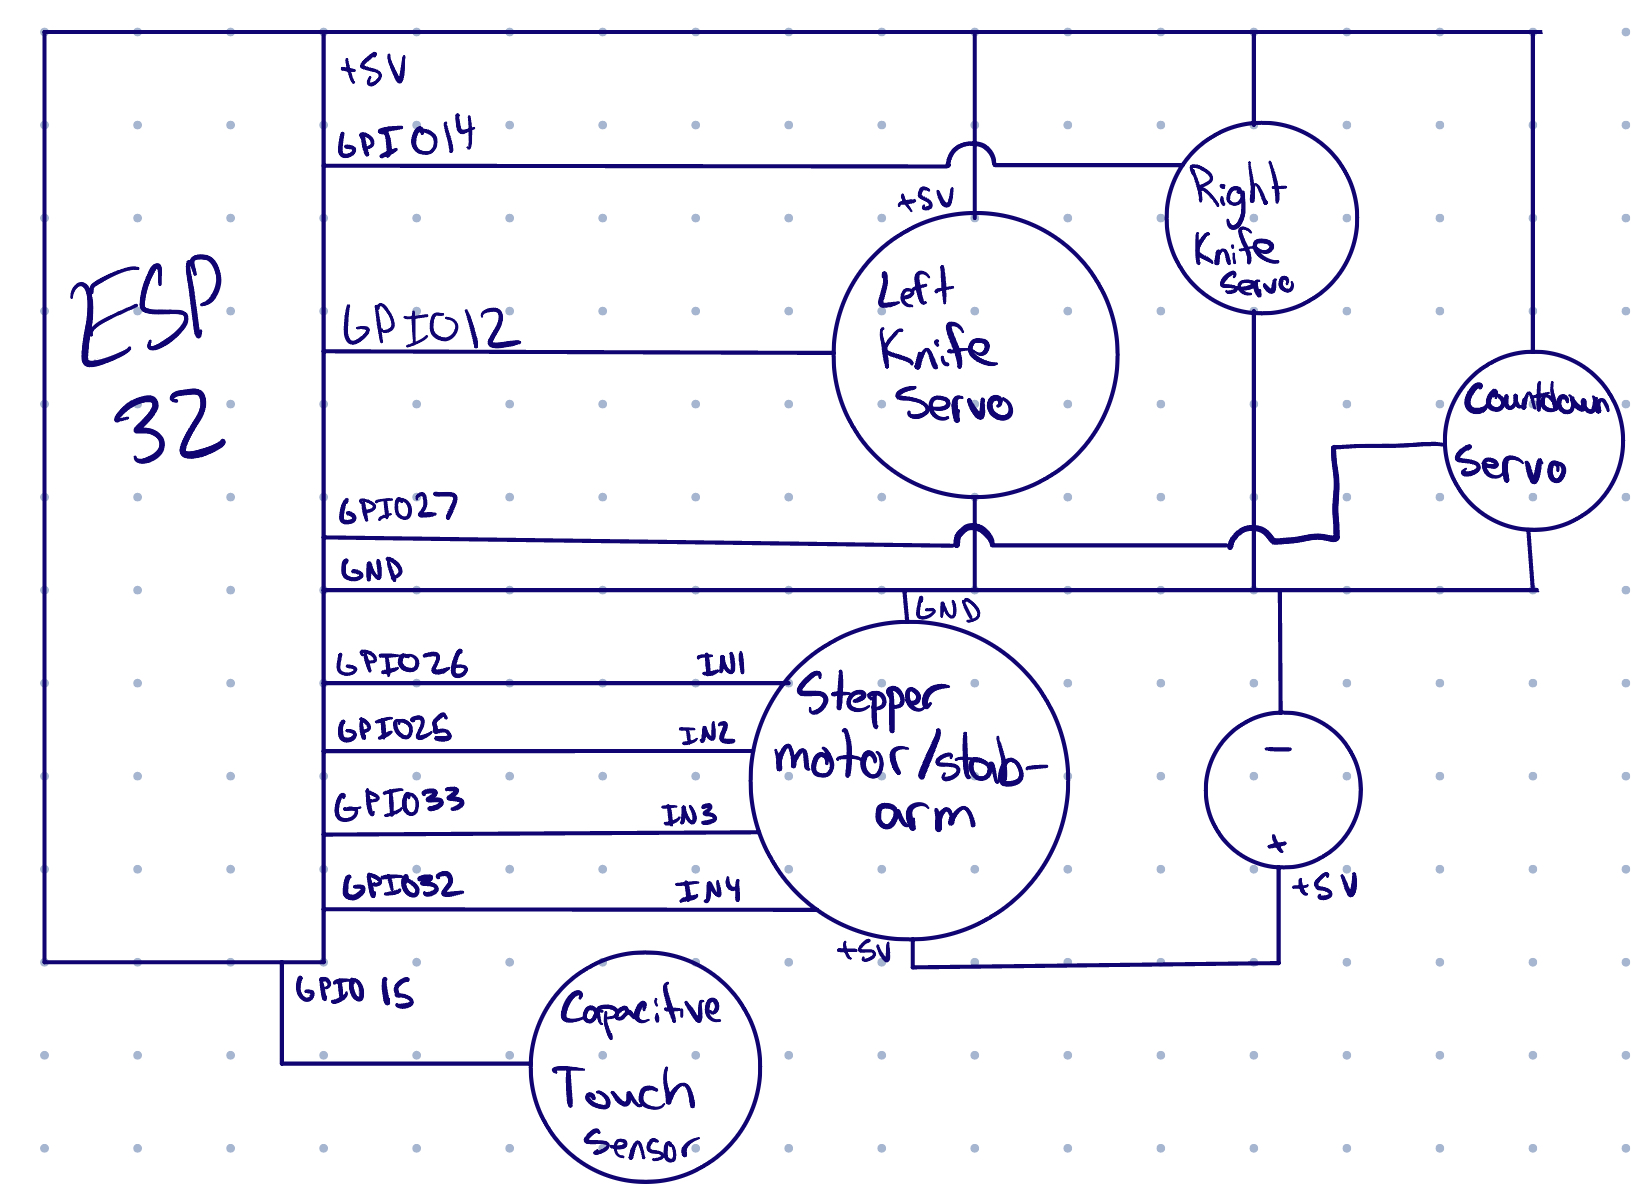 +5V
GPIO14
+5V
Right
Knife
Servo
ESP
32
Left
Knife
Servo
GPIO12
Countdown
Servo
GPIO27
GND
GND
GPIO26
IN1
GPIO25
IN2
GPIO33
IN3
GPIO32
IN4
Stepper
motor/stab-
arm
+5V
-
+
+5V
GPIO15
Capacitive
Touch
Sensor